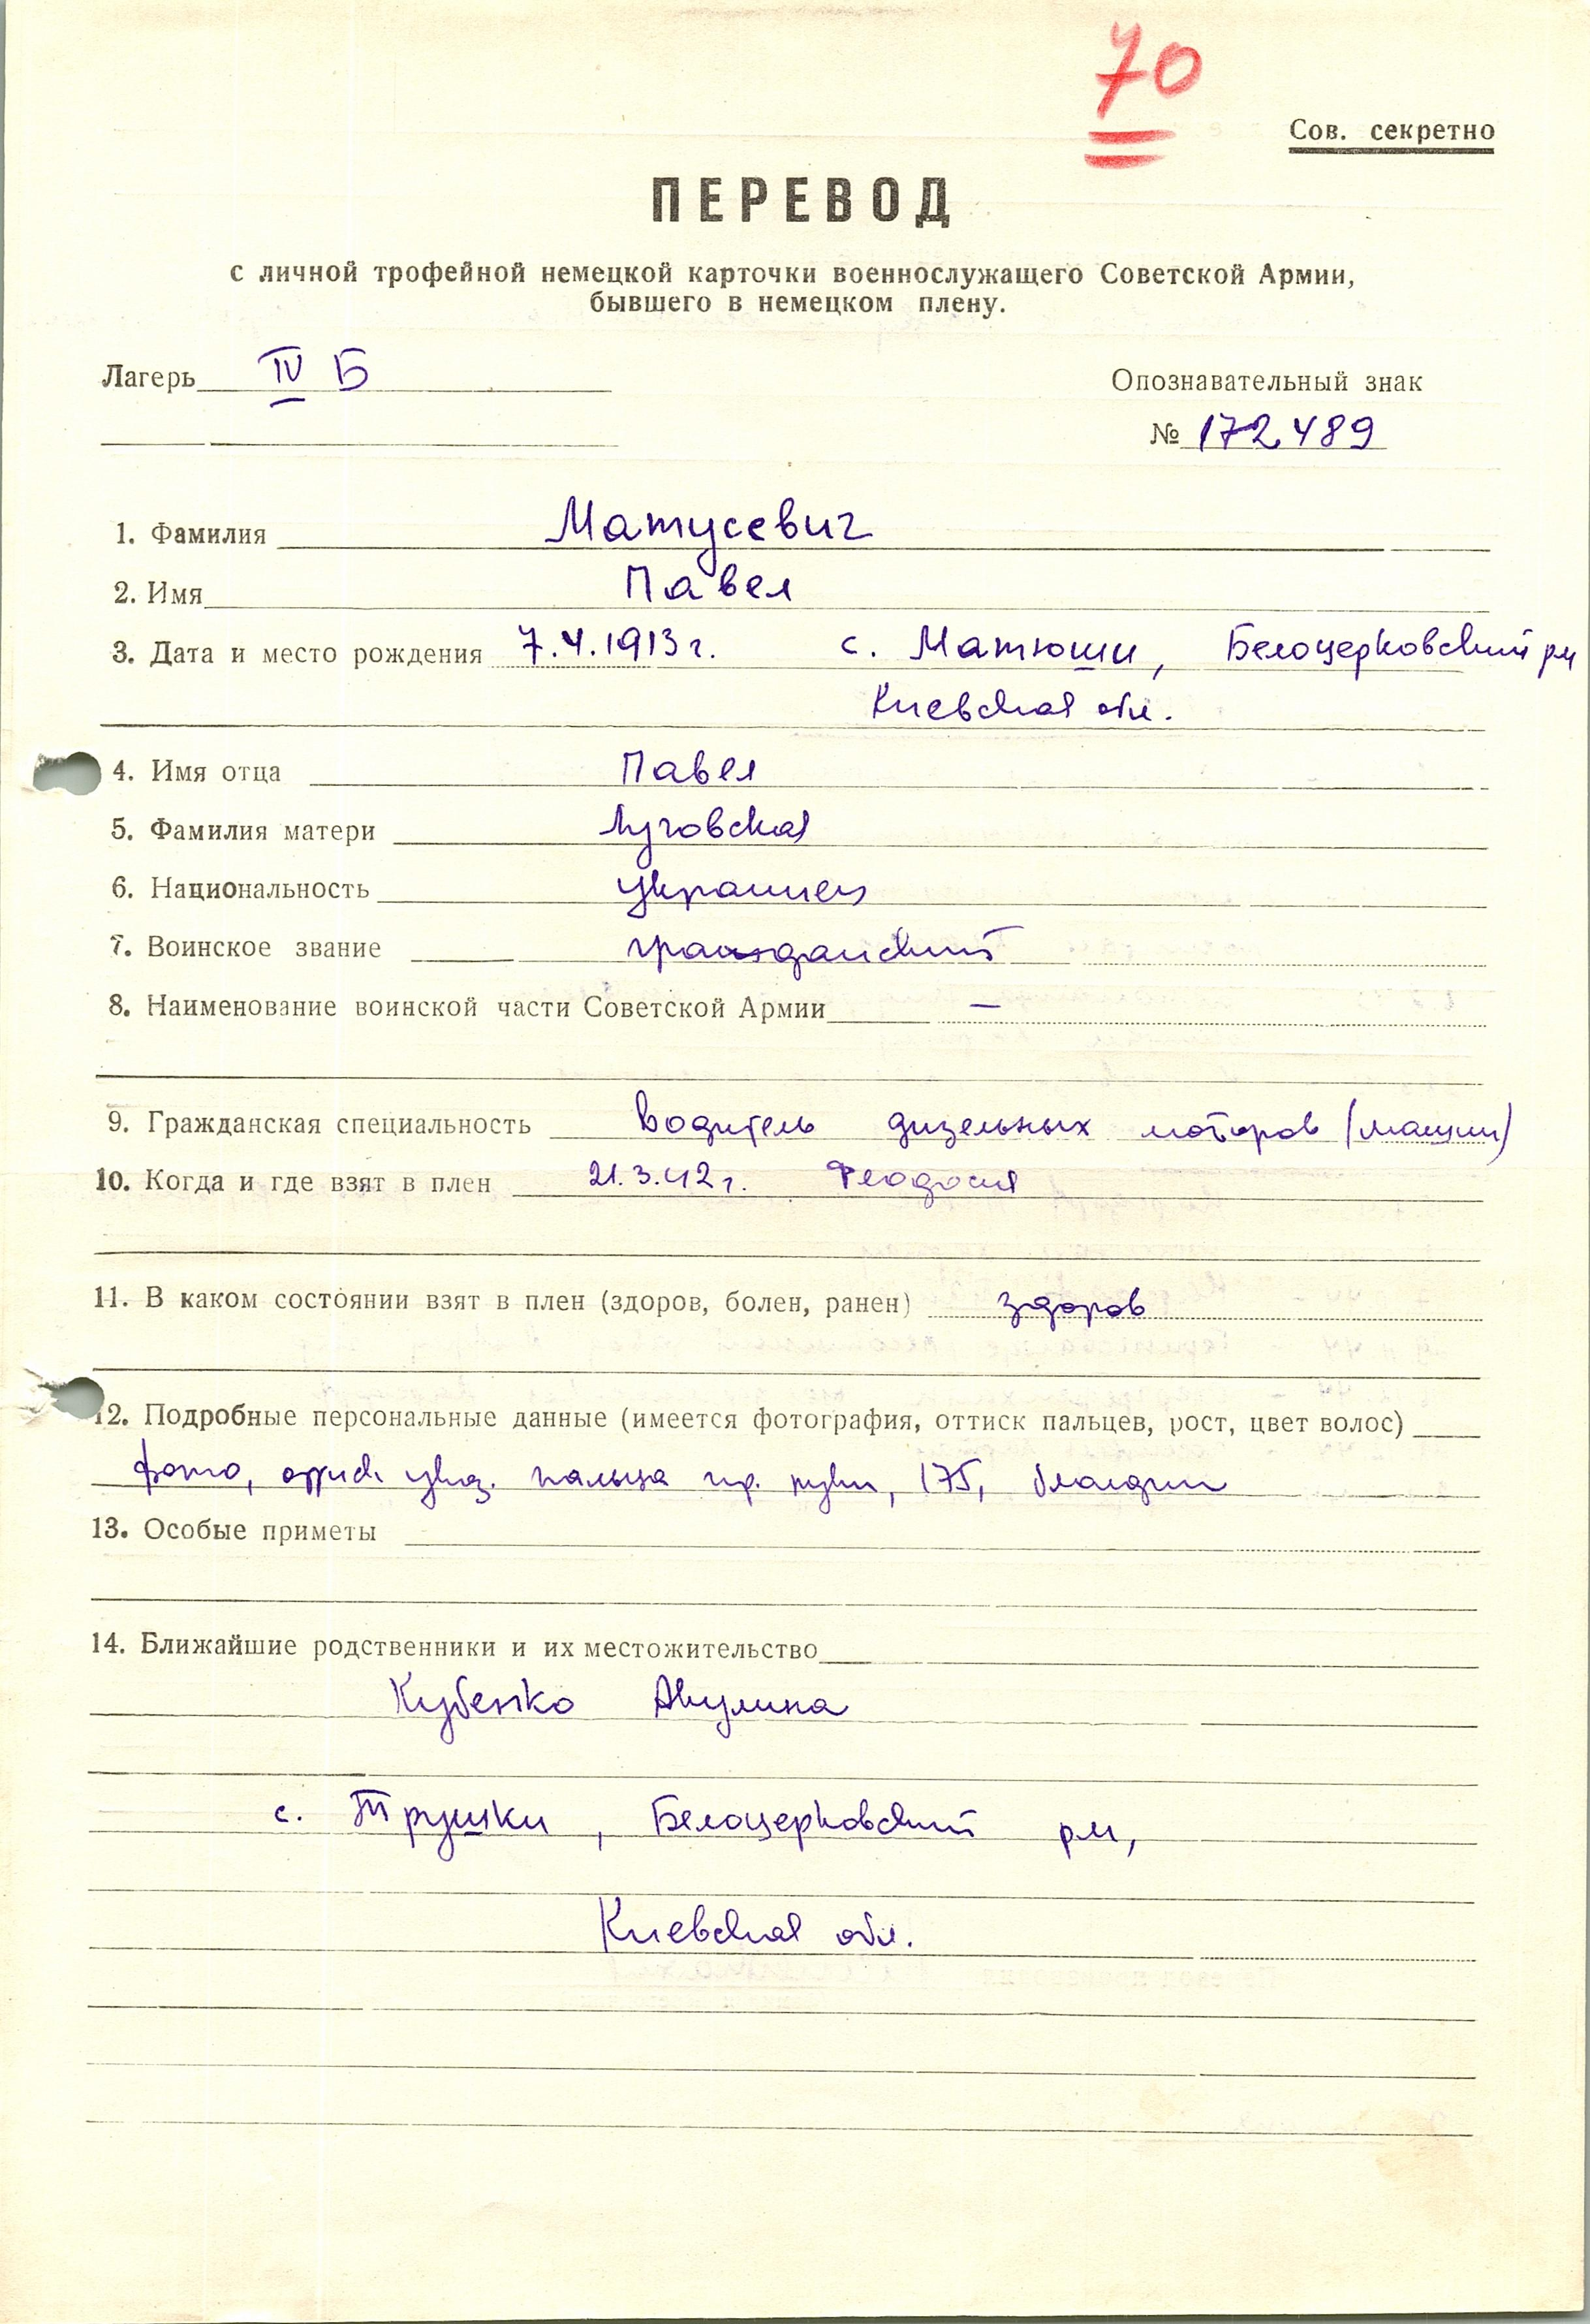 70
Сов. секретно
ПЕРЕВОД
с личной трофейной немецкой карточки военнослужащего Советской Армии,
бывшего в немецком плену.
Лагерь IV Б
Опознавательный знак
№ 172489
1. Фамилия Матусевич
2. Имя Павел
3. Дата и место рождения 7.4.1913 г. с. Матюши, Белоцерковский рн
Киевская обл.
4. Имя отца Павел
5. Фамилия матери Луговская
6. Национальность украинец
7. Воинское звание гражданский
8. Наименование воинской части Советской Армии —
9. Гражданская специальность водитель дизельных моторов (машин)
10. Когда и где взят в плен 21.3.42 г. Феодосия
11. В каком состоянии взят в плен (здоров, болен, ранен) здоров
12. Подробные персональные данные (имеется фотография, оттиск пальцев, рост, цвет волос)
фото, оттиск указ. пальца пр. руки, 175, блондин
13. Особые приметы
14. Ближайшие родственники и их местожительство
Кубенко Акулина
с. Трушки, Белоцерковский рн,
Киевская обл.